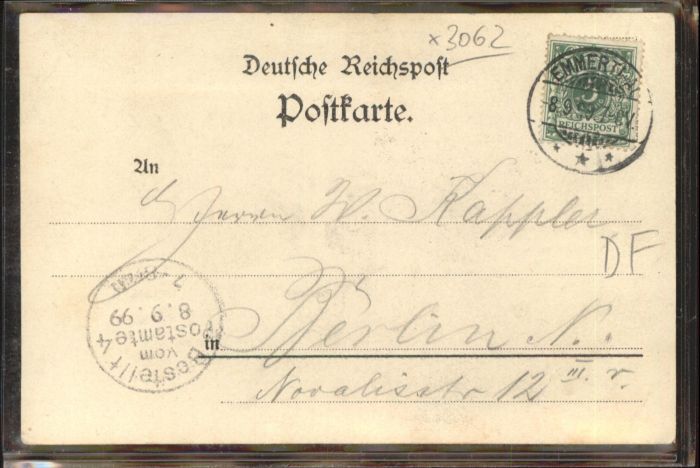 ×3062
Deutsche Reichspost
Postkarte.
EMMERTHAL
8.9.
REICHSPOST
An
Herrn W. Kappler
DF
in Berlin N.
Novalisstr 12 III. r.
Bestellt
vom
Postamte 4
8.9.99
7